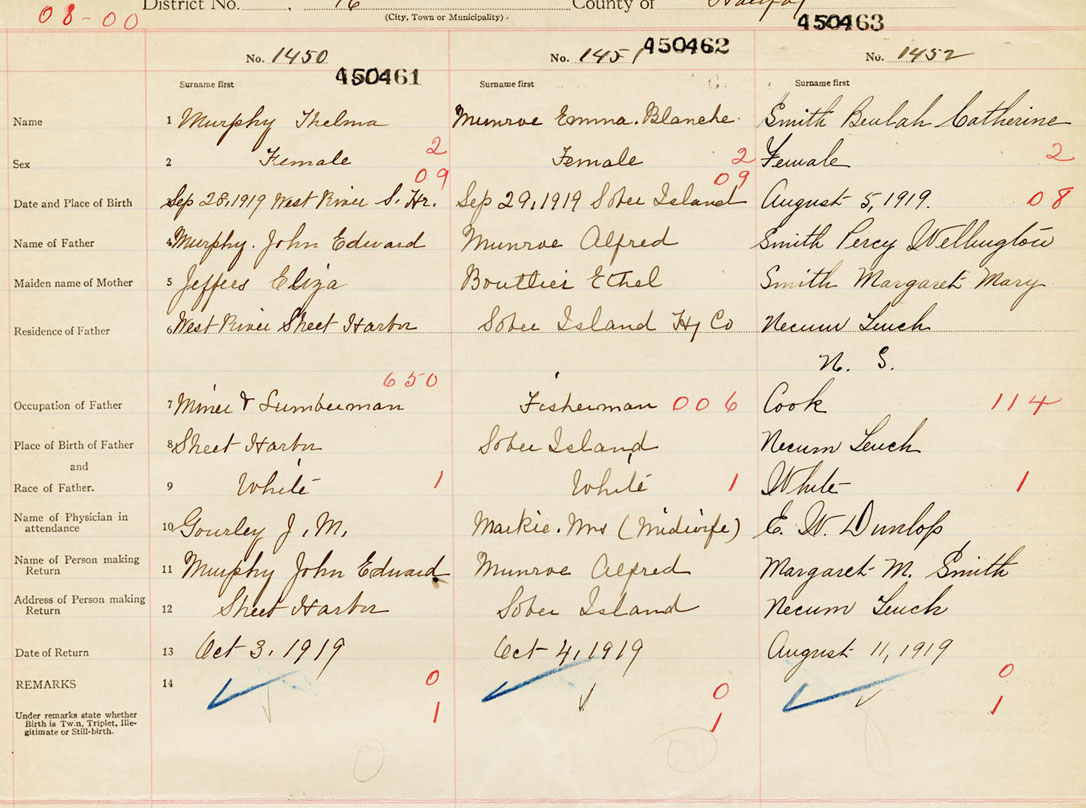 08-00
District No. 16 County of Halifax
(City, Town or Municipality)
450463
No. 1450 No. 1451 450462 No. 1452
450461
Surname first Surname first Surname first
Name 1 Murphy Thelma Munroe Emma. Blanche. Smith Beulah Catherine
Sex 2 Female 2 Female 2 Female 2
09 09
Date and Place of Birth Sep 28, 1919 West River S. Hr. Sep 29, 1919 Sober Island August 5, 1919. 08
Name of Father 4 Murphy. John Edward Munroe Alfred Smith Percy Wellington
Maiden name of Mother 5 Jeffers Eliza Boutlier Ethel Smith Margaret Mary
Residence of Father 6 West River Sheet Harbor Sober Island Hx Co Necum Teuch
N. S.
650
Occupation of Father 7 Miner & Lumberman Fisherman 006 Cook 114
Place of Birth of Father 8 Sheet Harbor Sober Island Necum Teuch
and
Race of Father. 9 White 1 White 1 White 1
Name of Physician in
attendance 10 Gourley J. M. Mrs (Midwife) E. W. Dunlop
Name of Person making
Return 11 Murphy John Edward Munroe Alfred Margaret M. Smith
Address of Person making
Return 12 Sheet Harbor Sober Island Necum Teuch
Date of Return 13 Oct 3, 1919 Oct 4, 1919 August 11, 1919
REMARKS 14 0 0 0
Under remarks state whether
Birth is Twin, Triplet, Ille-
gitimate or Still-birth. 1 1 1